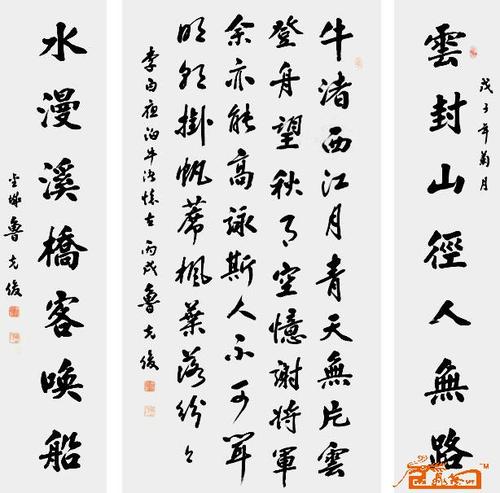 雲封山徑人無路
戊子年菊月
牛渚西江月青天無片雲
登舟望秋月空憶謝將軍
余亦能高詠斯人不可聞
明朝掛帆蓆楓葉落紛々
李白夜泊牛渚懷古 丙戌 魯克俊
水漫溪橋客喚船
魯克俊